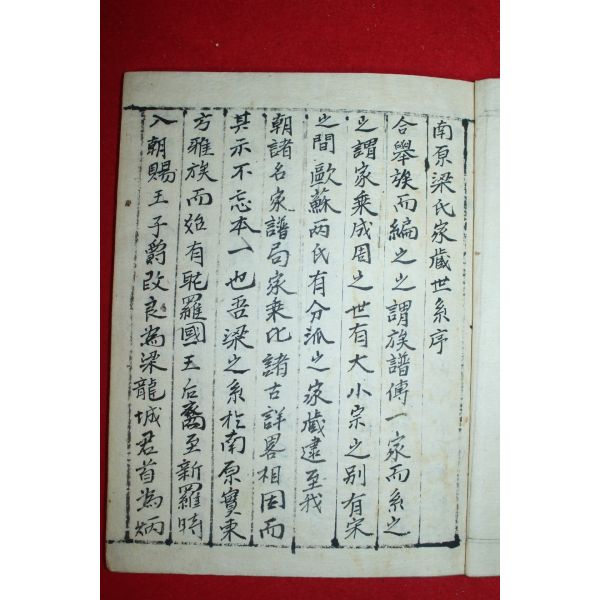 南原梁氏家藏世系序
合擧族而編之之謂族譜傳一家而系之
之謂家乘成周之世有大小宗之別有宋
之間歐蘇两氏有分派之家藏逮至我
朝諸名家譜局家乘比諸古詳畧相因而
其示不忘本一也吾梁之系於南原實東
方雅族而始有耽羅國王后裔至新羅時
入朝賜王子爵改良為梁龍城君首為炳